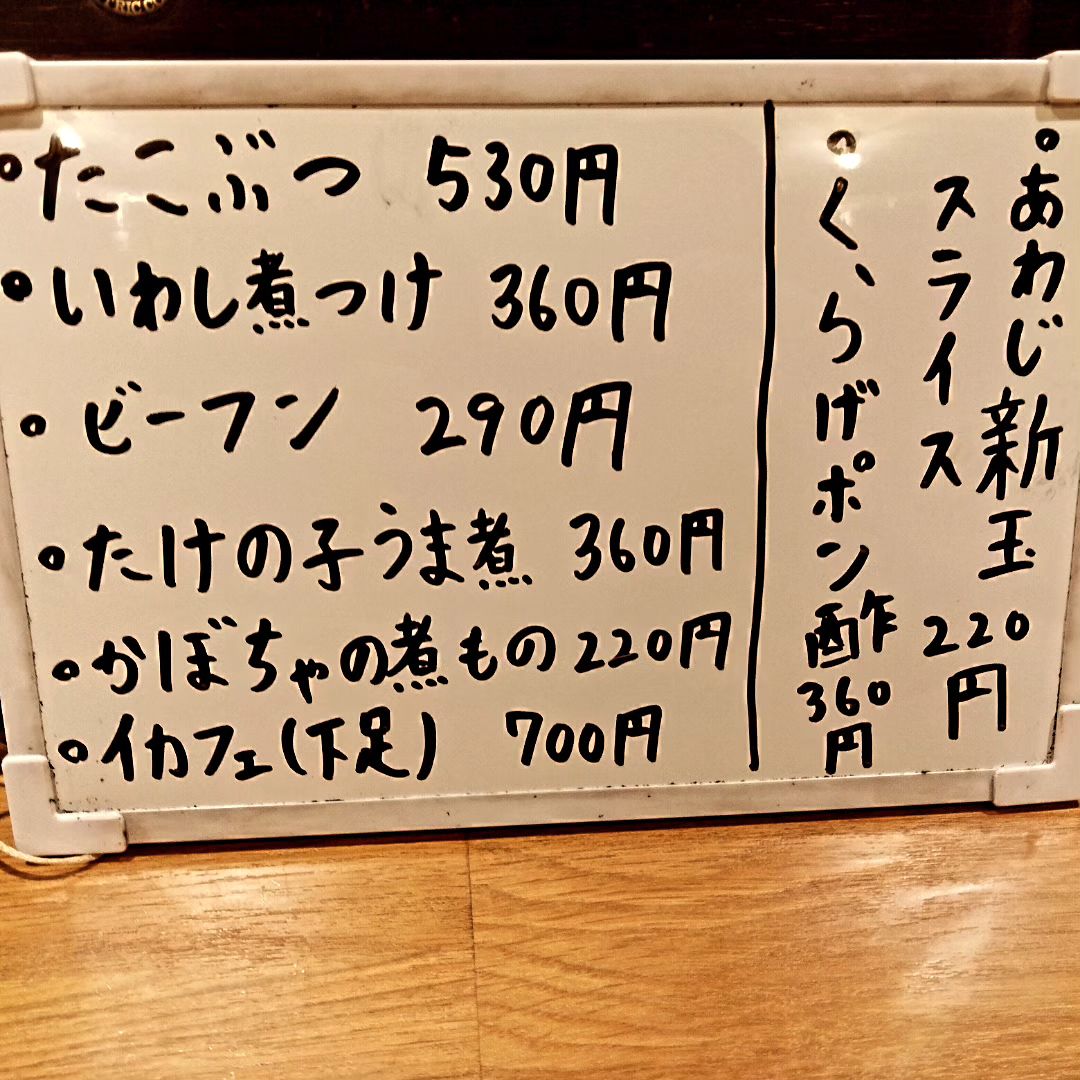 ・たこぶつ 530円
・いわし煮つけ 360円
・ビーフン 290円
・たけの子うま煮 360円
・かぼちゃの煮もの 220円
・イカフェ(下足) 700円
・あわじ新玉
スライス
220円
・くらげポン酢
360円